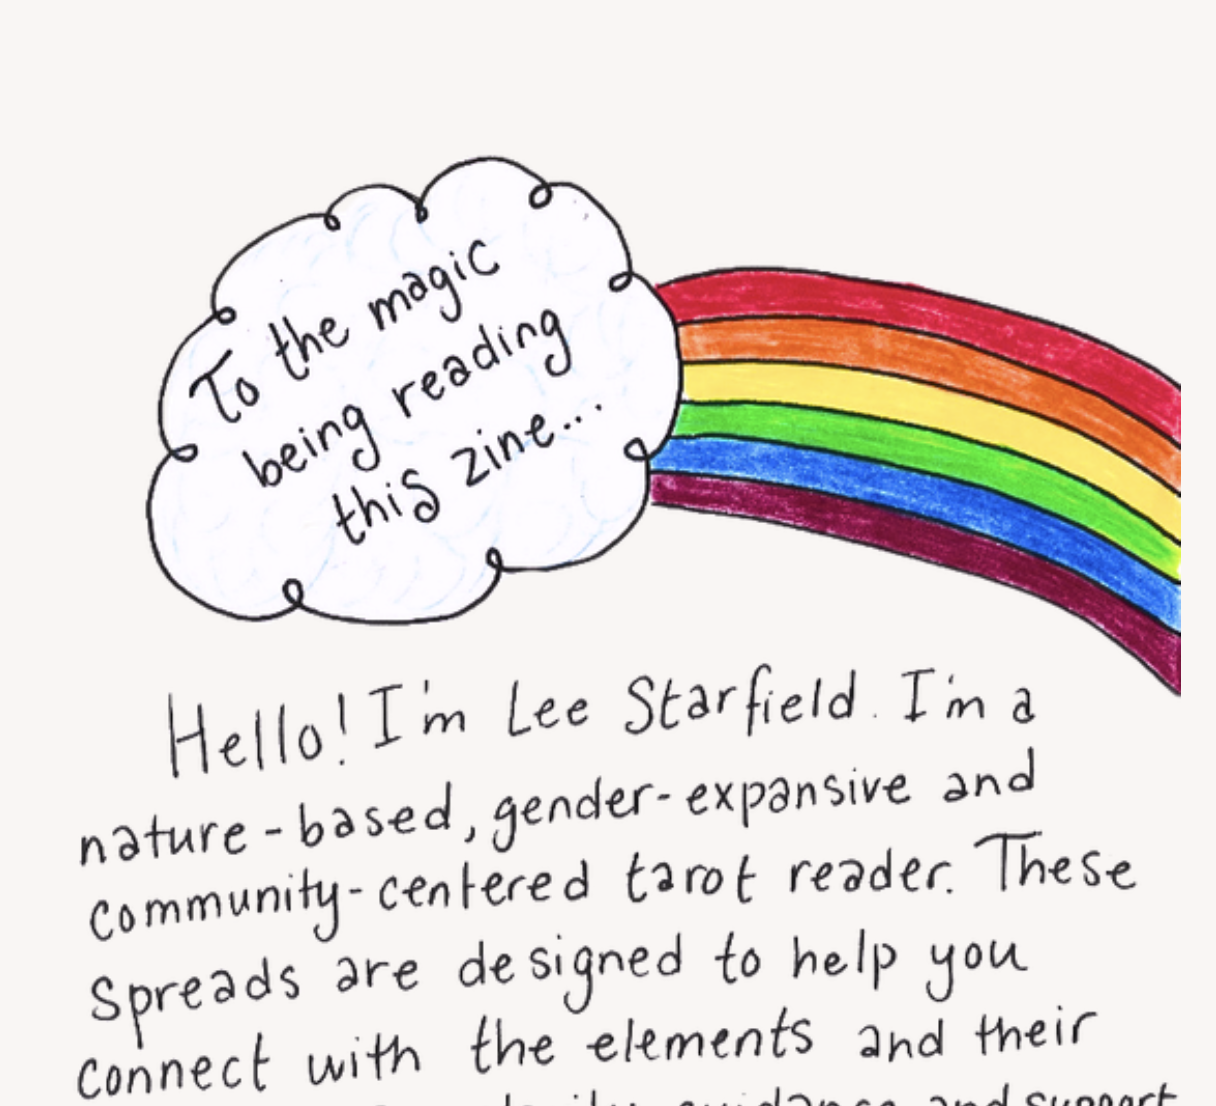 To the magic
being reading
this zine...
Hello! I'm Lee Starfield. I'm a
nature-based, gender-expansive and
community-centered tarot reader. These
Spreads are designed to help you
connect with the elements and their
guidance and support